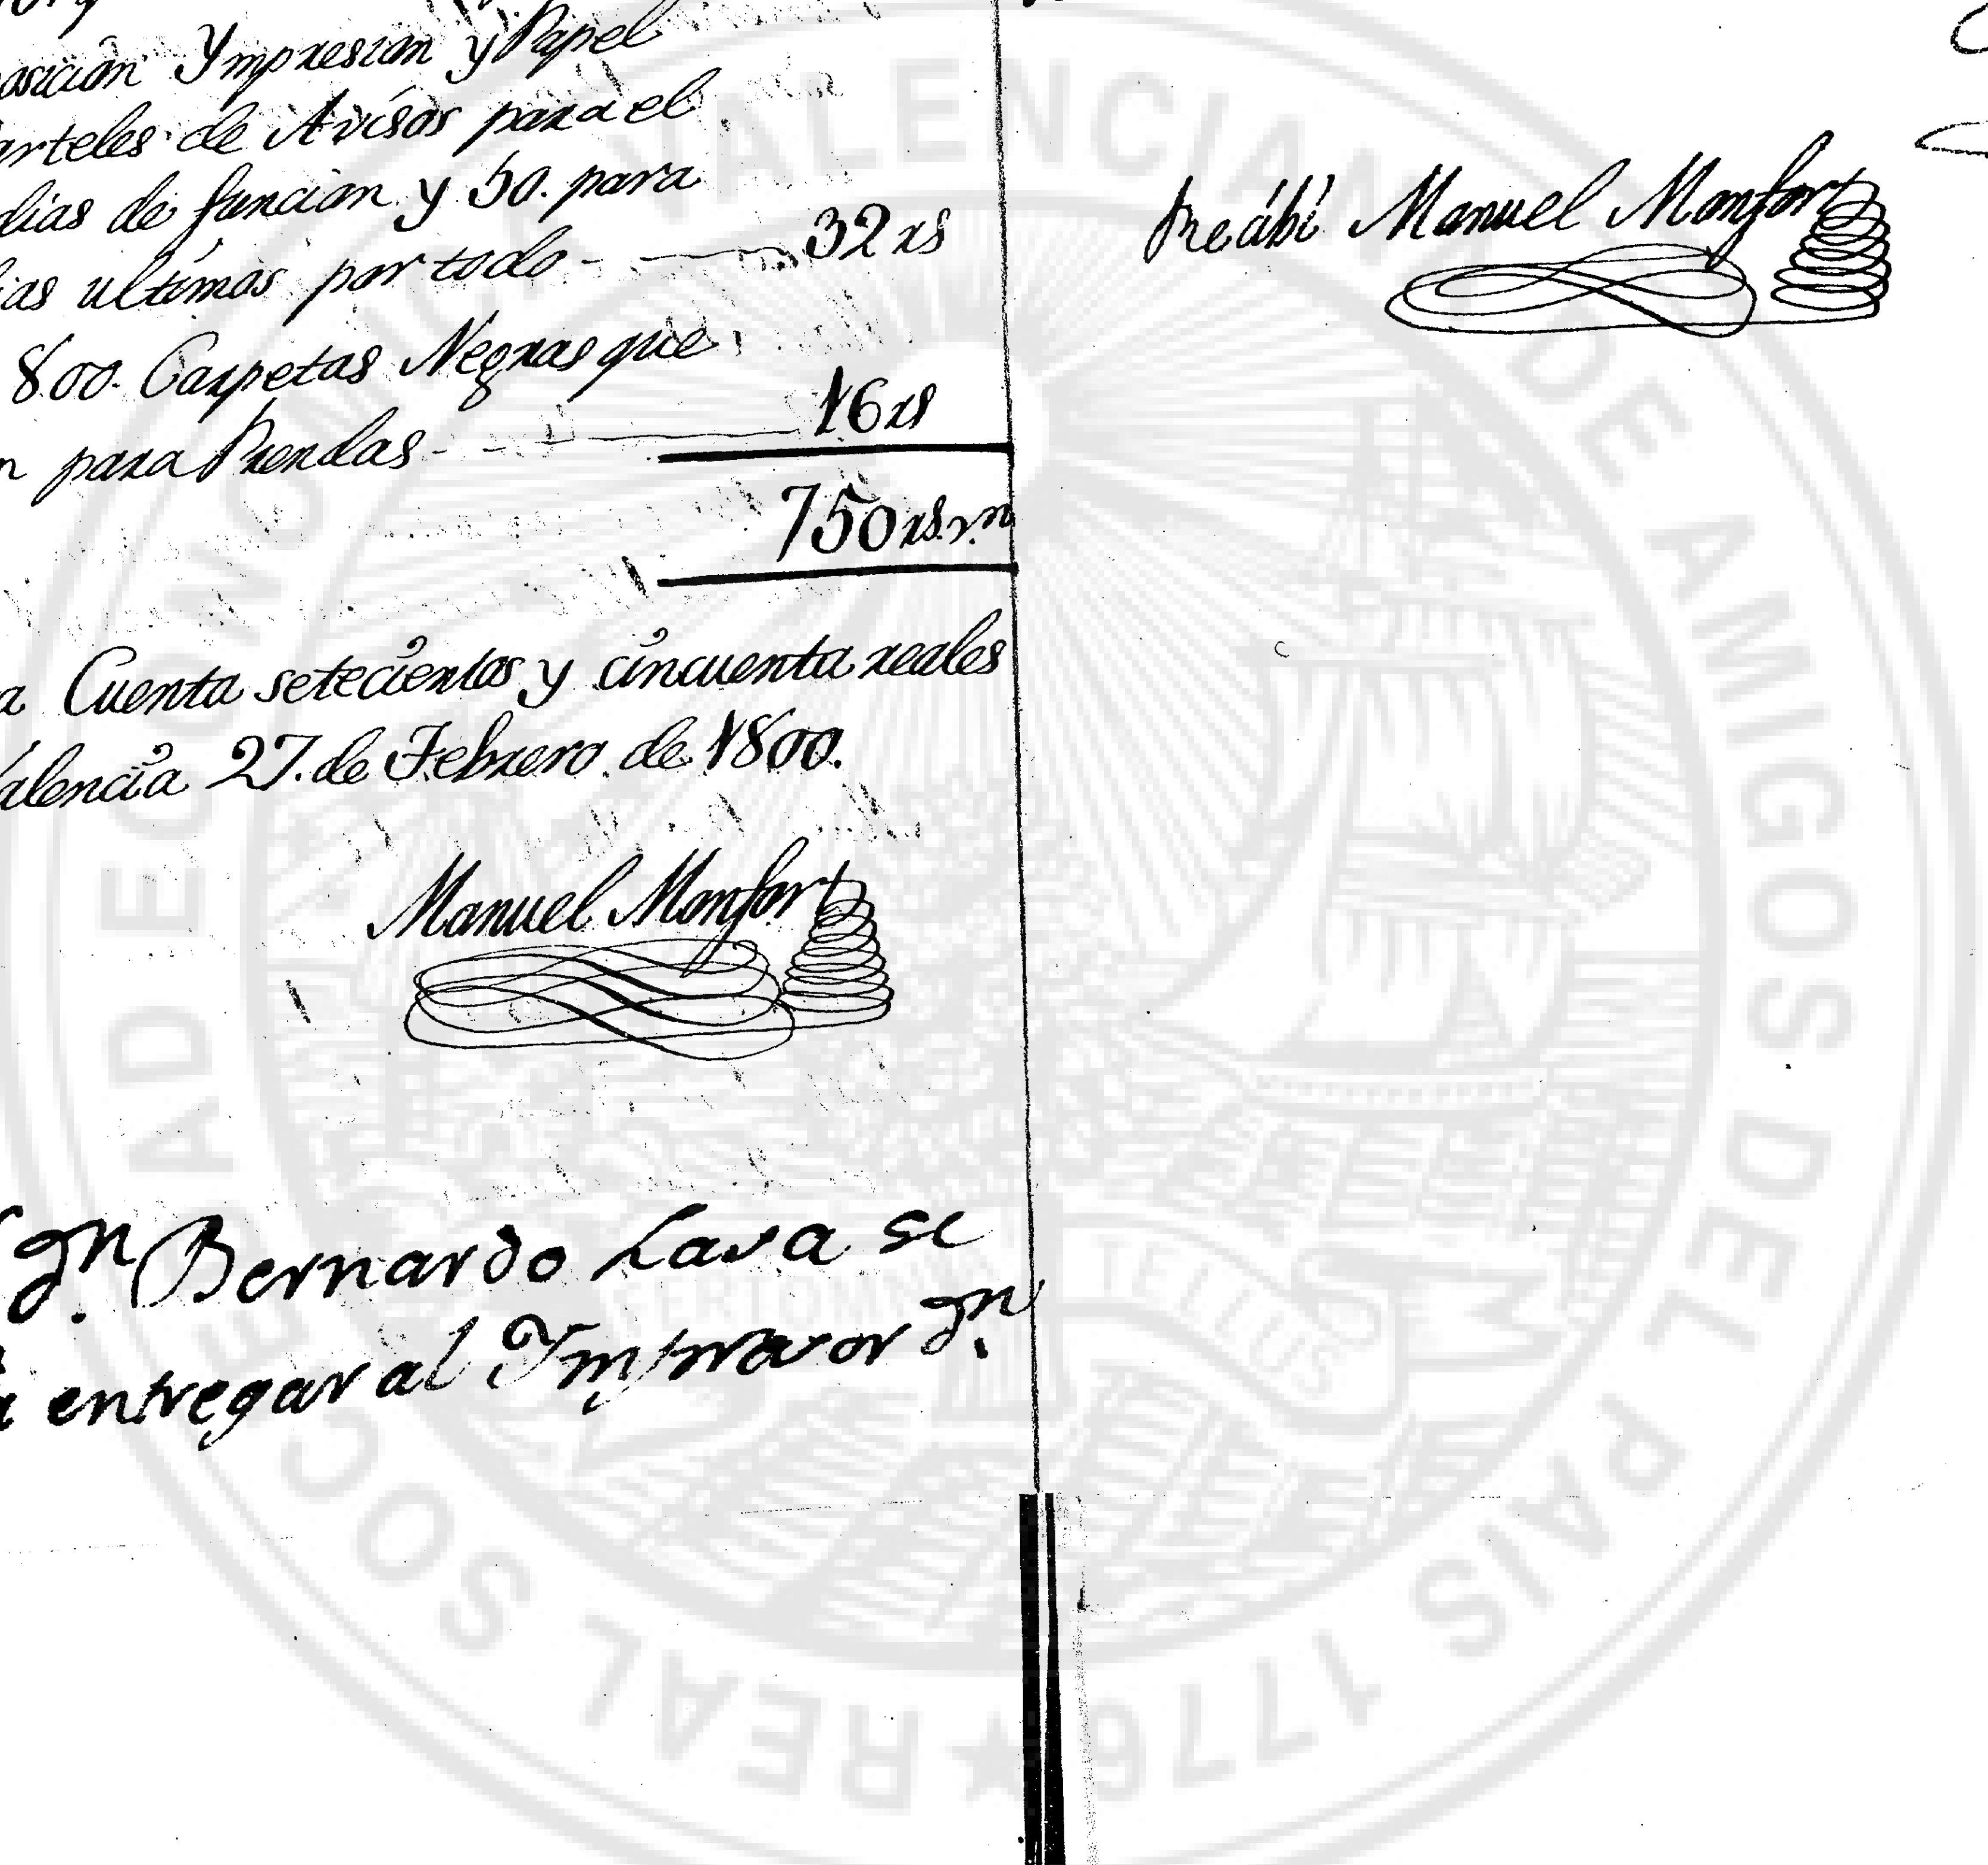 asicion Ympresion y Papel
arteles de Avisos para el
dias de funcion y 50. para
as ultimos por todo - — 32 rs
800. Carpetas Negras que
n para Prendas - - — 16 rs
750 rs. vn
a Cuenta setecientos y cincuenta reales
alencia 27. de Febrero de 1800.
Manuel Monfort
Dn. Bernardo Lasa se
entregar al Impresor Dn.
Recibí Manuel Monfort
REAL SOCIEDAD ECONOMICA VALENCIANA DE AMIGOS DEL PAIS 1776